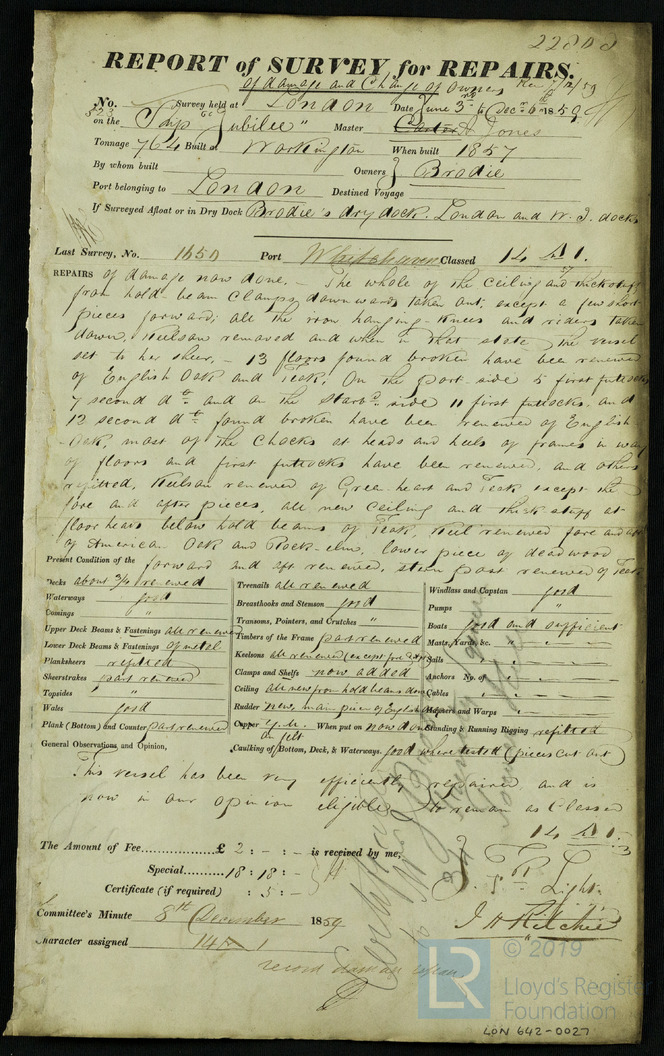 22808
REPORT of SURVEY for REPAIRS.
of damage and Change of owners
No. 523 Survey held at London Date June 3rd to Decr 6th 1859
on the Ship "Jubilee" Master Carter Jones
Tonnage 764 Built at Workington When built 1857
By whom built Owners Brodie
Port belonging to London Destined Voyage
If Surveyed Afloat or in Dry Dock Brodie's dry dock. London and W. I. docks
Last Survey, No. 1650 Port Whitehaven Classed 14 A 1.
57
REPAIRS of damage now done. — The whole of the Ceiling and thickstuff
from hold-beam Clamps downwards taken out, except a few short
pieces forward; all the iron hanging-Knees and riders taken
down, Keelson removed and when in that state the vessel
set to her sheer, — 13 floors found broken have been renewed
of English Oak and Teak. On the port side 5 first futtocks
7 second dto and on the starbd side 11 first futtocks, and
12 second dto found broken have been renewed of English
Oak, most of the Chocks at heads and heels of frames in way
of floors and first futtocks have been renewed, and others
refitted, Keelson renewed of Green-heart and Teak except the
fore and after pieces, all new Ceiling and thick stuff at
floor heads below hold beams of Teak, Keel renewed fore and aft
of American Oak and Rock-elm, lower piece of deadwood
Present Condition of the forward and aft renewed, stern post renewed of Teak
Decks about 3/4 renewed
Waterways good
Comings "
Upper Deck Beams & Fastenings all renewed
Lower Deck Beams & Fastenings of metal
Planksheers refitted
Sheerstrakes part renewed
Topsides "
Wales good
Plank (Bottom) and Counter part renewed
Treenails all renewed
Breasthooks and Stemson good
Transoms, Pointers, and Crutches "
Timbers of the Frame part renewed
Keelsons all renewed (except fore & aft ps)
Clamps and Shelfs now added
Ceiling all new from hold beams down
Rudder new, main piece of English Oak
Copper Y.M. When put on now done
on felt
Windlass and Capstan good
Pumps "
Boats good and sufficient
Masts, Yards, &c. "
Sails "
Anchors No. of "
Cables "
Hawsers and Warps "
Standing & Running Rigging refitted
General Observations and Opinion, Caulking of Bottom, Deck, & Waterways. good where tested (pieces cut out)
This vessel has been very efficiently repaired and is
now in our opinion eligible to remain as Classed
14 A 1.
The Amount of Fee............... £ 2 : - : - is received by me,
Special....... 18 : 18 : -
Certificate (if required) : 5 : -
Light
J H Ritchie
Committee's Minute 8th December 1859
Character assigned 14 A 1
record
© 2019
LR
Lloyd's Register
Foundation
LON 642-0027